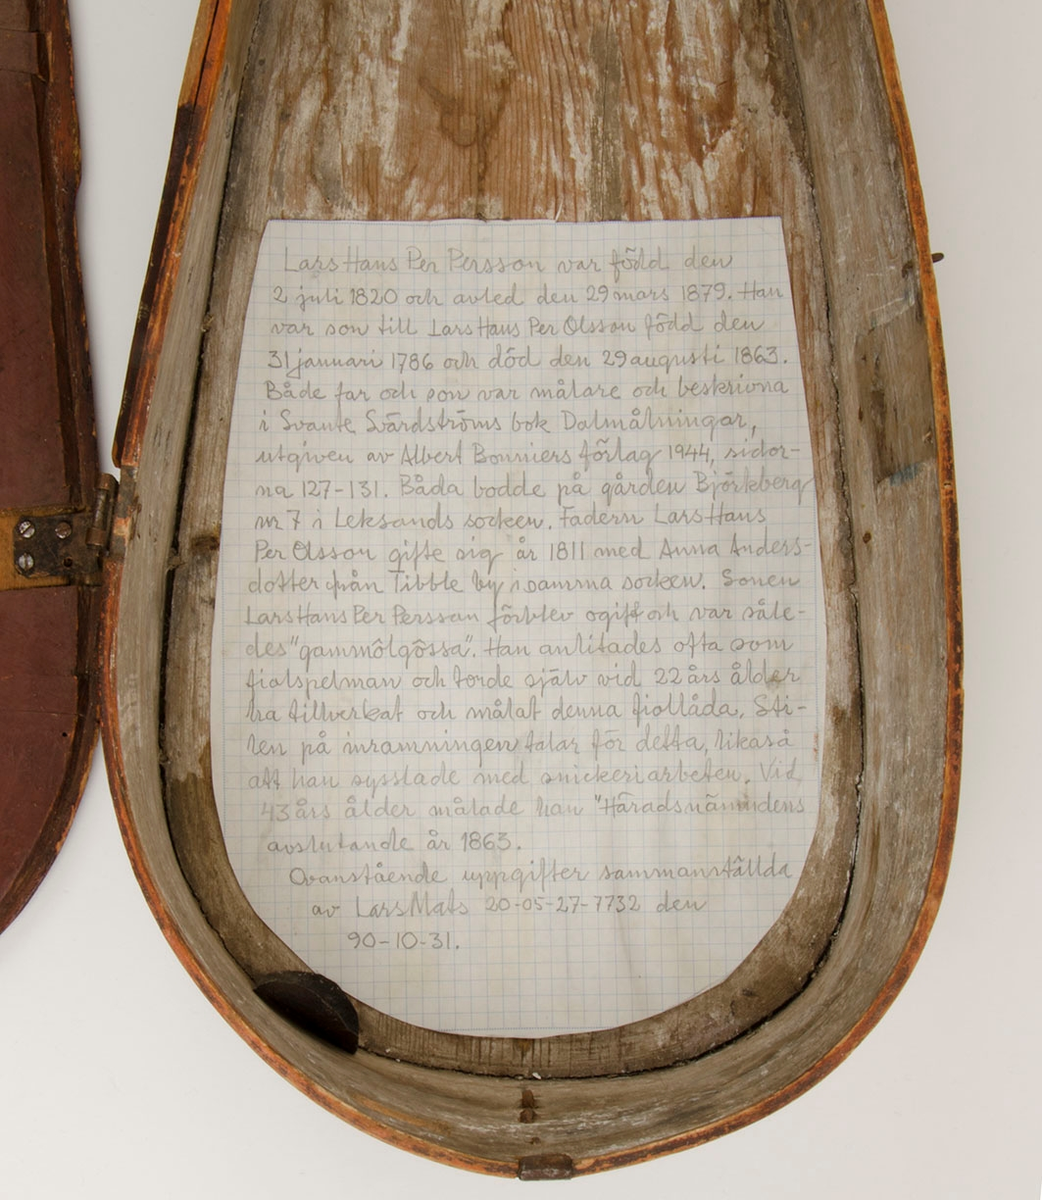 Lars Hans Per Persson var född den
2 juli 1820 och avled den 29 mars 1879. Han
var son till Lars Hans Per Olsson född den
31 januari 1786 och död den 29 augusti 1863.
Både far och son var målare och beskrivna
i Svante Svärdströms bok Dalmålningar,
utgiven av Albert Bonniers förlag 1944, sidor-
na 127-131. Båda bodde på gården Björkberg
nr 7 i Leksands socken. Fadern Lars Hans
Per Olsson gifte sig år 1811 med Anna Anders-
dotter från Tibble by i samma socken. Sonen
Lars Hans Per Persson förblev ogift och var såle-
des "gammôlgôssa". Han anlitades ofta som
fiolspelman och torde själv vid 22 års ålder
ha tillverkat och målat denna fiollåda. Sti-
len på inramningen talar för detta, likaså
att han sysslade med snickeriarbeten. Vid
43 års ålder målade han "Häradsnämndens
avslutande år 1863.
Ovanstående uppgifter sammanställda
av Lars Mats 20-05-27-7732 den
90-10-31.